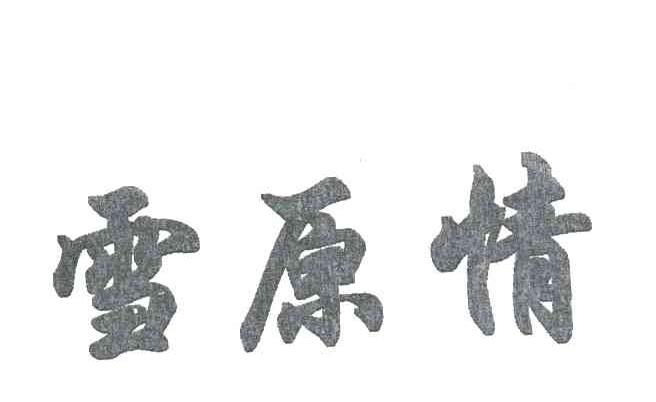 雪原情